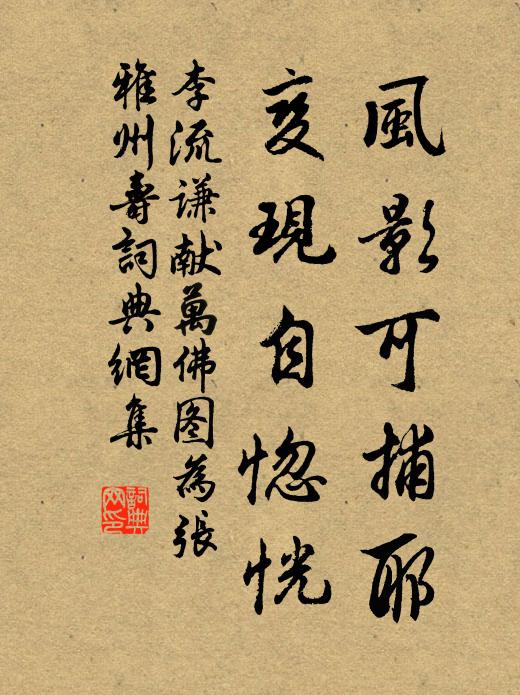 風影可捕耶
变現自惚恍
李流謙献萬佛图為張
雅州壽詞典網集
詞典网印